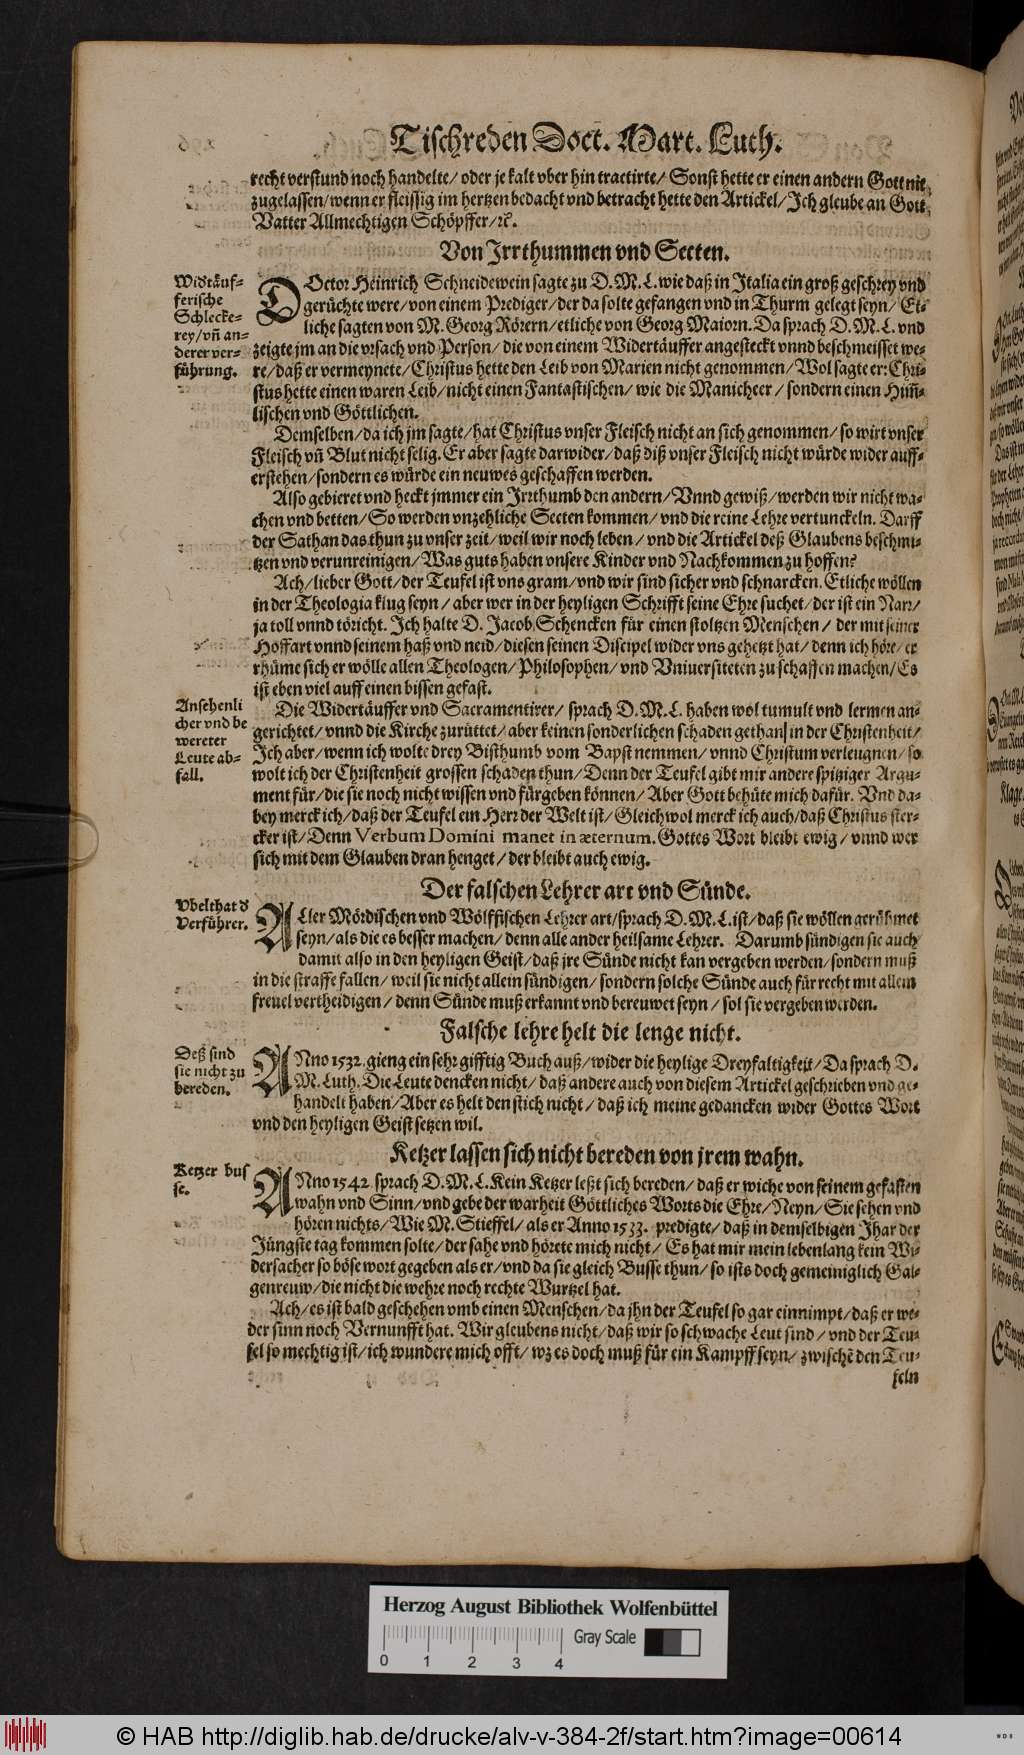 Tischreden Doct. Mart. Luth.
recht verstund noch handelte/ oder je kalt vber hin tractirte/ Sonst hette er einen andern Gott nie
zugelassen/wenn er fleissig im hertzen bedacht vnd betracht hette den Artickel/Ich gleube an Gott
Vatter Allmechtigen Schöpffer/ꝛc̃.
Von Irrthummen vnd Secten.
Widtäuf-
ferische
Schlecke-
rey/vñ an-
derer ver-
führung.
DOctor Heinrich Schneidewein sagte zu D. M. L. wie daß in Italia ein groß geschrey vnd
gerüchte were/von einem Prediger/der da solte gefangen vnd in Thurm gelegt seyn/ Et-
liche sagten von M. Georg Rörern/etliche von Georg Maiorn. Da sprach D. M. L. vnd
zeigte jm an die vrsach vnd Person/ die von einem Widertäuffer angesteckt vnnd beschmeisset we-
re/daß er vermeynete/Christus hette den Leib von Marien nicht genommen/Wol sagte er: Chri-
stus hette einen waren Leib/nicht einen Fantastischen/ wie die Manicheer/ sondern einen Him̃-
lischen vnd Göttlichen.
Demselben/da ich jm sagte/hat Christus vnser Fleisch nicht an sich genommen/so wirt vnser
Fleisch vñ Blut nicht selig. Er aber sagte darwider/daß diß vnser Fleisch nicht würde wider auff-
erstehen/sondern es würde ein neuwes geschaffen werden.
Also gebieret vnd heckt jmmer ein Irrthumb den andern/Vnnd gewiß/werden wir nicht wa-
chen vnd betten/So werden vnzehliche Secten kommen/vnd die reine Lehre vertunckeln. Darff
der Sathan das thun zu vnser zeit/weil wir noch leben/vnd die Artickel deß Glaubens beschmi-
tzen vnd verunreinigen/Was guts haben vnsere Kinder vnd Nachkommen zu hoffen?
Ach/lieber Gott/der Teufel ist vns gram/vnd wir sind sicher vnd schnarcken. Etliche wöllen
in der Theologia klug seyn/ aber wer in der heyligen Schrifft seine Ehre suchet/der ist ein Narr/
ja toll vnnd töricht. Ich halte D. Jacob Schencken für einen stoltzen Menschen/ der mit seiner
Hoffart vnnd seinem haß vnd neid/diesen seinen Discipel wider vns gehetzt hat/denn ich höre/er
rhüme sich er wölle allen Theologen/Philosophen/vnd Vniuersiteten zu schaffen machen/Es
ist eben viel auff einen bissen gefast.
Ansehenli
cher vnd be
wereter
Leute ab-
fall.
Die Widertäuffer vnd Sacramentirer/ sprach D. M. L. haben wol tumult vnd lermen an-
gerichtet/vnnd die Kirche zurüttet/aber keinen sonderlichen schaden gethan in der Christenheit/
Ich aber/wenn ich wolte drey Bisthumb vom Bapst nemmen/vnnd Christum verleugnen/so
wolt ich der Christenheit grossen schaden thun/Denn der Teufel gibt mir andere spitziger Argu-
ment für/die sie noch nicht wissen vnd fürgeben können/Aber Gott behüte mich dafür. Vnd da-
bey merck ich/daß der Teufel ein Herr der Welt ist/Gleichwol merck ich auch/daß Christus ster-
cker ist/Denn Verbum Domini manet in æternum. Gottes Wort bleibt ewig/ vnnd wer
sich mit dem Glauben dran henget/der bleibt auch ewig.
Der falschen Lehrer art vnd Sünde.
Vbelthat ď
Verführer.
ALler Mördischen vnd Wölffischen Lehrer art/sprach D. M. L. ist/daß sie wöllen gerühmet
seyn/als die es besser machen/denn alle ander heilsame Lehrer. Darumb sündigen sie auch
damit also in den heyligen Geist/daß jre Sünde nicht kan vergeben werden/sondern muß
in die straffe fallen/ weil sie nicht allein sündigen/sondern solche Sünde auch für recht mit allem
freuel vertheidigen/ denn Sünde muß erkannt vnd bereuwet seyn/ sol sie vergeben werden.
Falsche lehre helt die lenge nicht.
Deß sind
sie nicht zu
bereden.
ANno 1532. gieng ein sehr gifftig Buch auß/wider die heylige Dreyfaltigkeit/Da sprach D.
M. Luth. Die Leute dencken nicht/ daß andere auch von diesem Artickel geschrieben vnd ge-
handelt haben/Aber es helt den stich nicht/ daß ich meine gedancken wider Gottes Wort
vnd den heyligen Geist setzen wil.
Ketzer lassen sich nicht bereden von jrem wahn.
Ketzer bus
se.
ANno 1542. sprach D. M. L. Kein Ketzer leßt sich bereden/daß er wiche von seinem gefasten
wahn vnd Sinn/vnd gebe der warheit Göttliches Worts die Ehre/Neyn/Sie sehen vnd
hören nichts/Wie M. Stieffel/als er Anno 1533. predigte/daß in demselbigen Jhar der
Jüngste tag kommen solte/der sahe vnd hörete mich nicht/ Es hat mir mein lebenlang kein Wi-
dersacher so böse wort gegeben als er/vnd da sie gleich Busse thun/so ists doch gemeiniglich Gal-
genreuw/die nicht die wehre noch rechte Wurtzel hat.
Ach/es ist bald geschehen vmb einen Menschen/da jhn der Teufel so gar einnimpt/daß er we-
der sinn noch Vernunfft hat. Wir gleubens nicht/daß wir so schwache Leut sind/vnd der Teu-
fel so mechtig ist/ich wundere mich offt/wz es doch muß für ein Kampff seyn/zwischē den Teu-
feln
Herzog August Bibliothek Wolfenbüttel
Gray Scale
0 1 2 3 4
© HAB http://diglib.hab.de/drucke/alv-v-384-2f/start.htm?image=00614